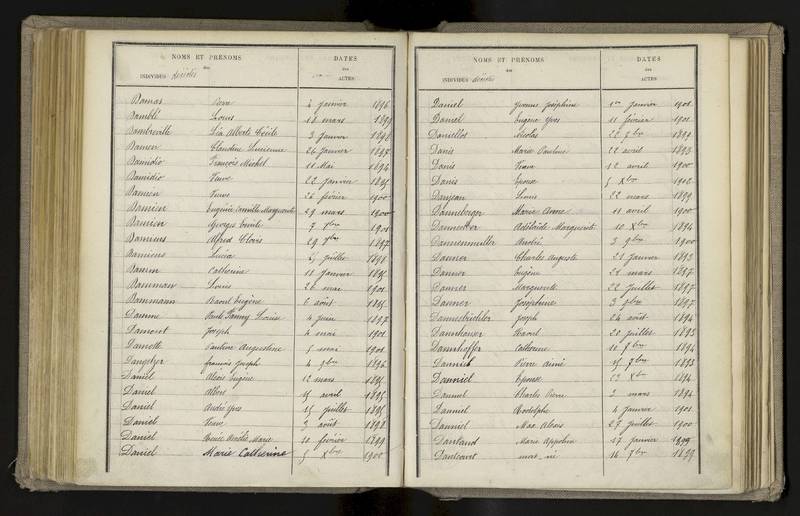 NOMS ET PRÉNOMS
des
INDIVIDUS décédés
DATES
des
ACTES
Damas 2 janvier 1896
Damblé Louis 18 mars 1899
Dambreville Léa Alberte Cécile 3 janvier 1898
Damen Claudine Lucienne 26 janvier 1897
Damidio François Michel 11 Mai 1894
Damidio Veuve 22 janvier 1895
Damien Veuve 26 février 1900
Damien Eugénie Camille Marguerite 29 mars 1900
Damien Georges Emile 7 Xbre 1901
Damiens Alfred Clovis 29 1897
Damiens Lucia juillet 1898
Damm Catherine 11 janvier 1895
Damman Louis 26 mai 1901
Dammann Raoul Eugène 6 août 1895
Fanny Louise 4 juin 1897
Joseph 4 mai 1901
Augustine 5 mai 1901
Joseph 4 9bre 1896
Daniel Alexis Eugène 12 mars 1895
Daniel Albert 15 avril 1895
Daniel André Yves 15 juillet 1895
Daniel Veuve 3 août 1898
Daniel Marie 10 février 1899
Daniel Marie Catherine 5 Xbre 1900
NOMS ET PRÉNOMS
des
INDIVIDUS décédés
DATES
des
ACTES
Daniel Yvonne Joséphine 1er janvier 1901
Daniel Eugène Yves 11 février 1901
Daniellos Nicolas 22 9bre 1894
Danis Marie Pauline 22 avril 1893
Danis Veuve 12 avril 1900
Danis Epouse 5 Xbre 1902
Danjean Louis 22 mars 1899
Danneberger Marie Anne 11 avril 1900
Dannecker Adélaïde Marguerite 10 Xbre 1894
Dannenmuller André 3 9bre 1900
Danner Charles Auguste 21 janvier 1893
Danner Eugène 21 mars 1897
Danner Marguerite 22 juillet 1897
Danner Joséphine 3 9bre 1897
Joseph 24 août 1894
Dannhauser Raoul 20 juillet 1893
Dannhoffer Catherine 10 9bre 1894
Danniel Pierre Aimé 15 9bre 1893
Danniel Epouse 12 Xbre 1894
Danniel Charles Pierre 2 mars 1894
Danniel Rodolphe 4 janvier 1901
Danniel Max Alexis 27 juillet 1900
Danland Marie Appoline 17 janvier 1899
Dancourt mort-né 14 1899